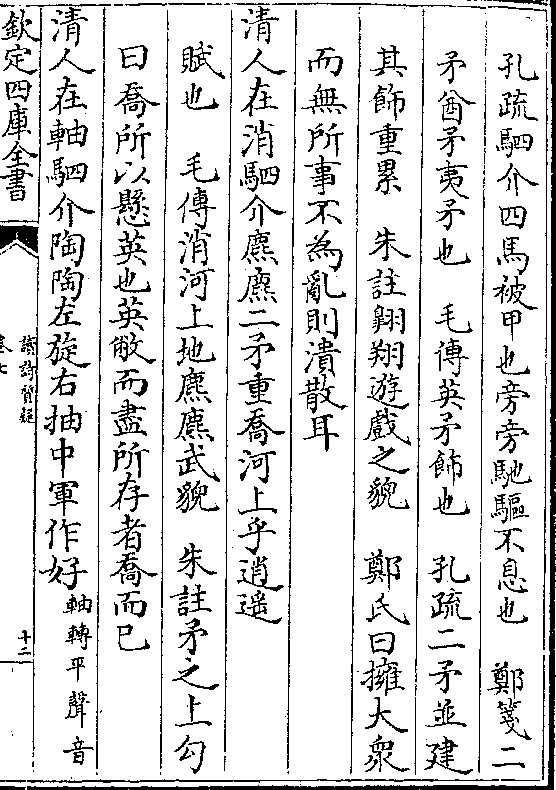 孔疏駟介四馬被甲也旁旁馳驅不息也　鄭箋二
矛酋矛夷矛也　毛傳英矛飾也　孔疏二矛並建
其飾重累　朱註翺翔遊戲之貌　鄭氏曰擁大衆
而無所事不為亂則潰散耳
清人在消駟介麃麃二矛重喬河上乎逍遥
賦也　毛傳消河上地麃麃武貌　朱註矛之上勾
曰喬所以懸英也英敝而盡所存者喬而已
清人在軸駟介陶陶左旋右抽中軍作好軸轉平聲音
欽定四庫全書
讀詩質疑
卷七
十二